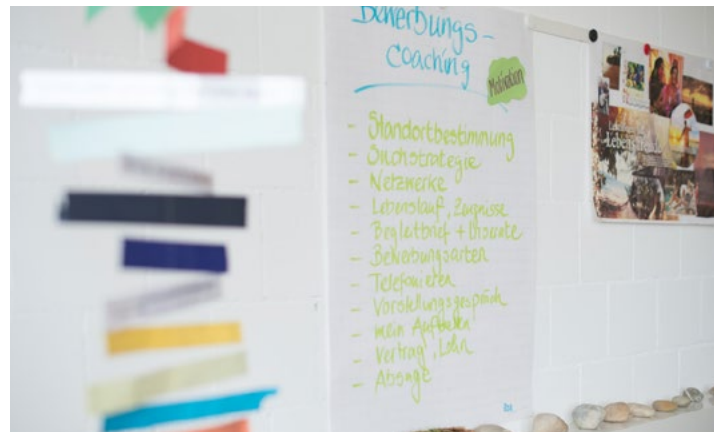 Bewerbungs-
Coaching
Motivation
- Standortbestimmung
- Suchstrategie
- Netzwerke
- Lebenslauf, Zeugnisse
- Begleitbrief + Inserate
- Bewerbungsarten
- Telefonieren
- Vorstellungsgespräch
- mein Auftreten
- Vertrag, Lohn
- Absage